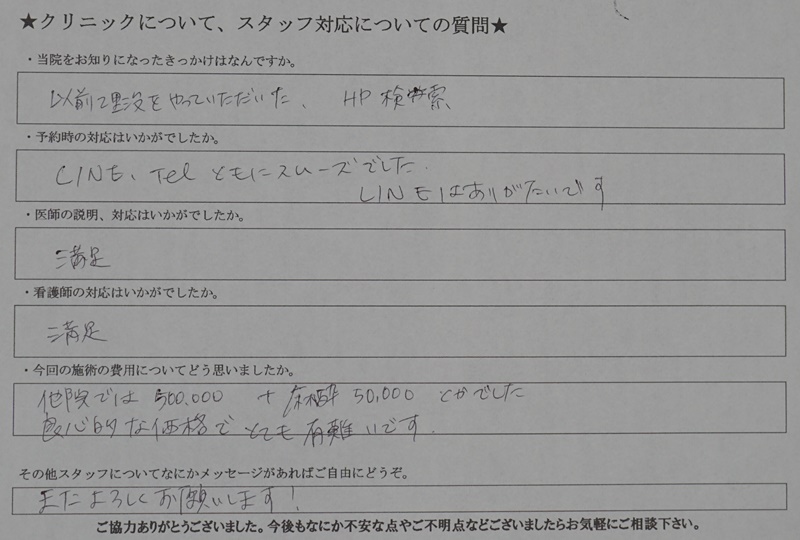 ★クリニックについて、スタッフ対応についての質問★
・当院をお知りになったきっかけはなんですか。
以前に埋没をやっていただいた、 HP検索
・予約時の対応はいかがでしたか。
LINE、Telともにスムーズでした。
LINEはありがたいです
・医師の説明、対応はいかがでしたか。
満足
・看護師の対応はいかがでしたか。
満足
・今回の施術の費用についてどう思いましたか。
他院では 500.000 + 麻酔 50,000 とかでした
良心的な価格でとても有難いです。
その他スタッフについてなにかメッセージがあればご自由にどうぞ。
またよろしくお願いします!
ご協力ありがとうございました。今後もなにか不安な点やご不明点などございましたらお気軽にご相談下さい。